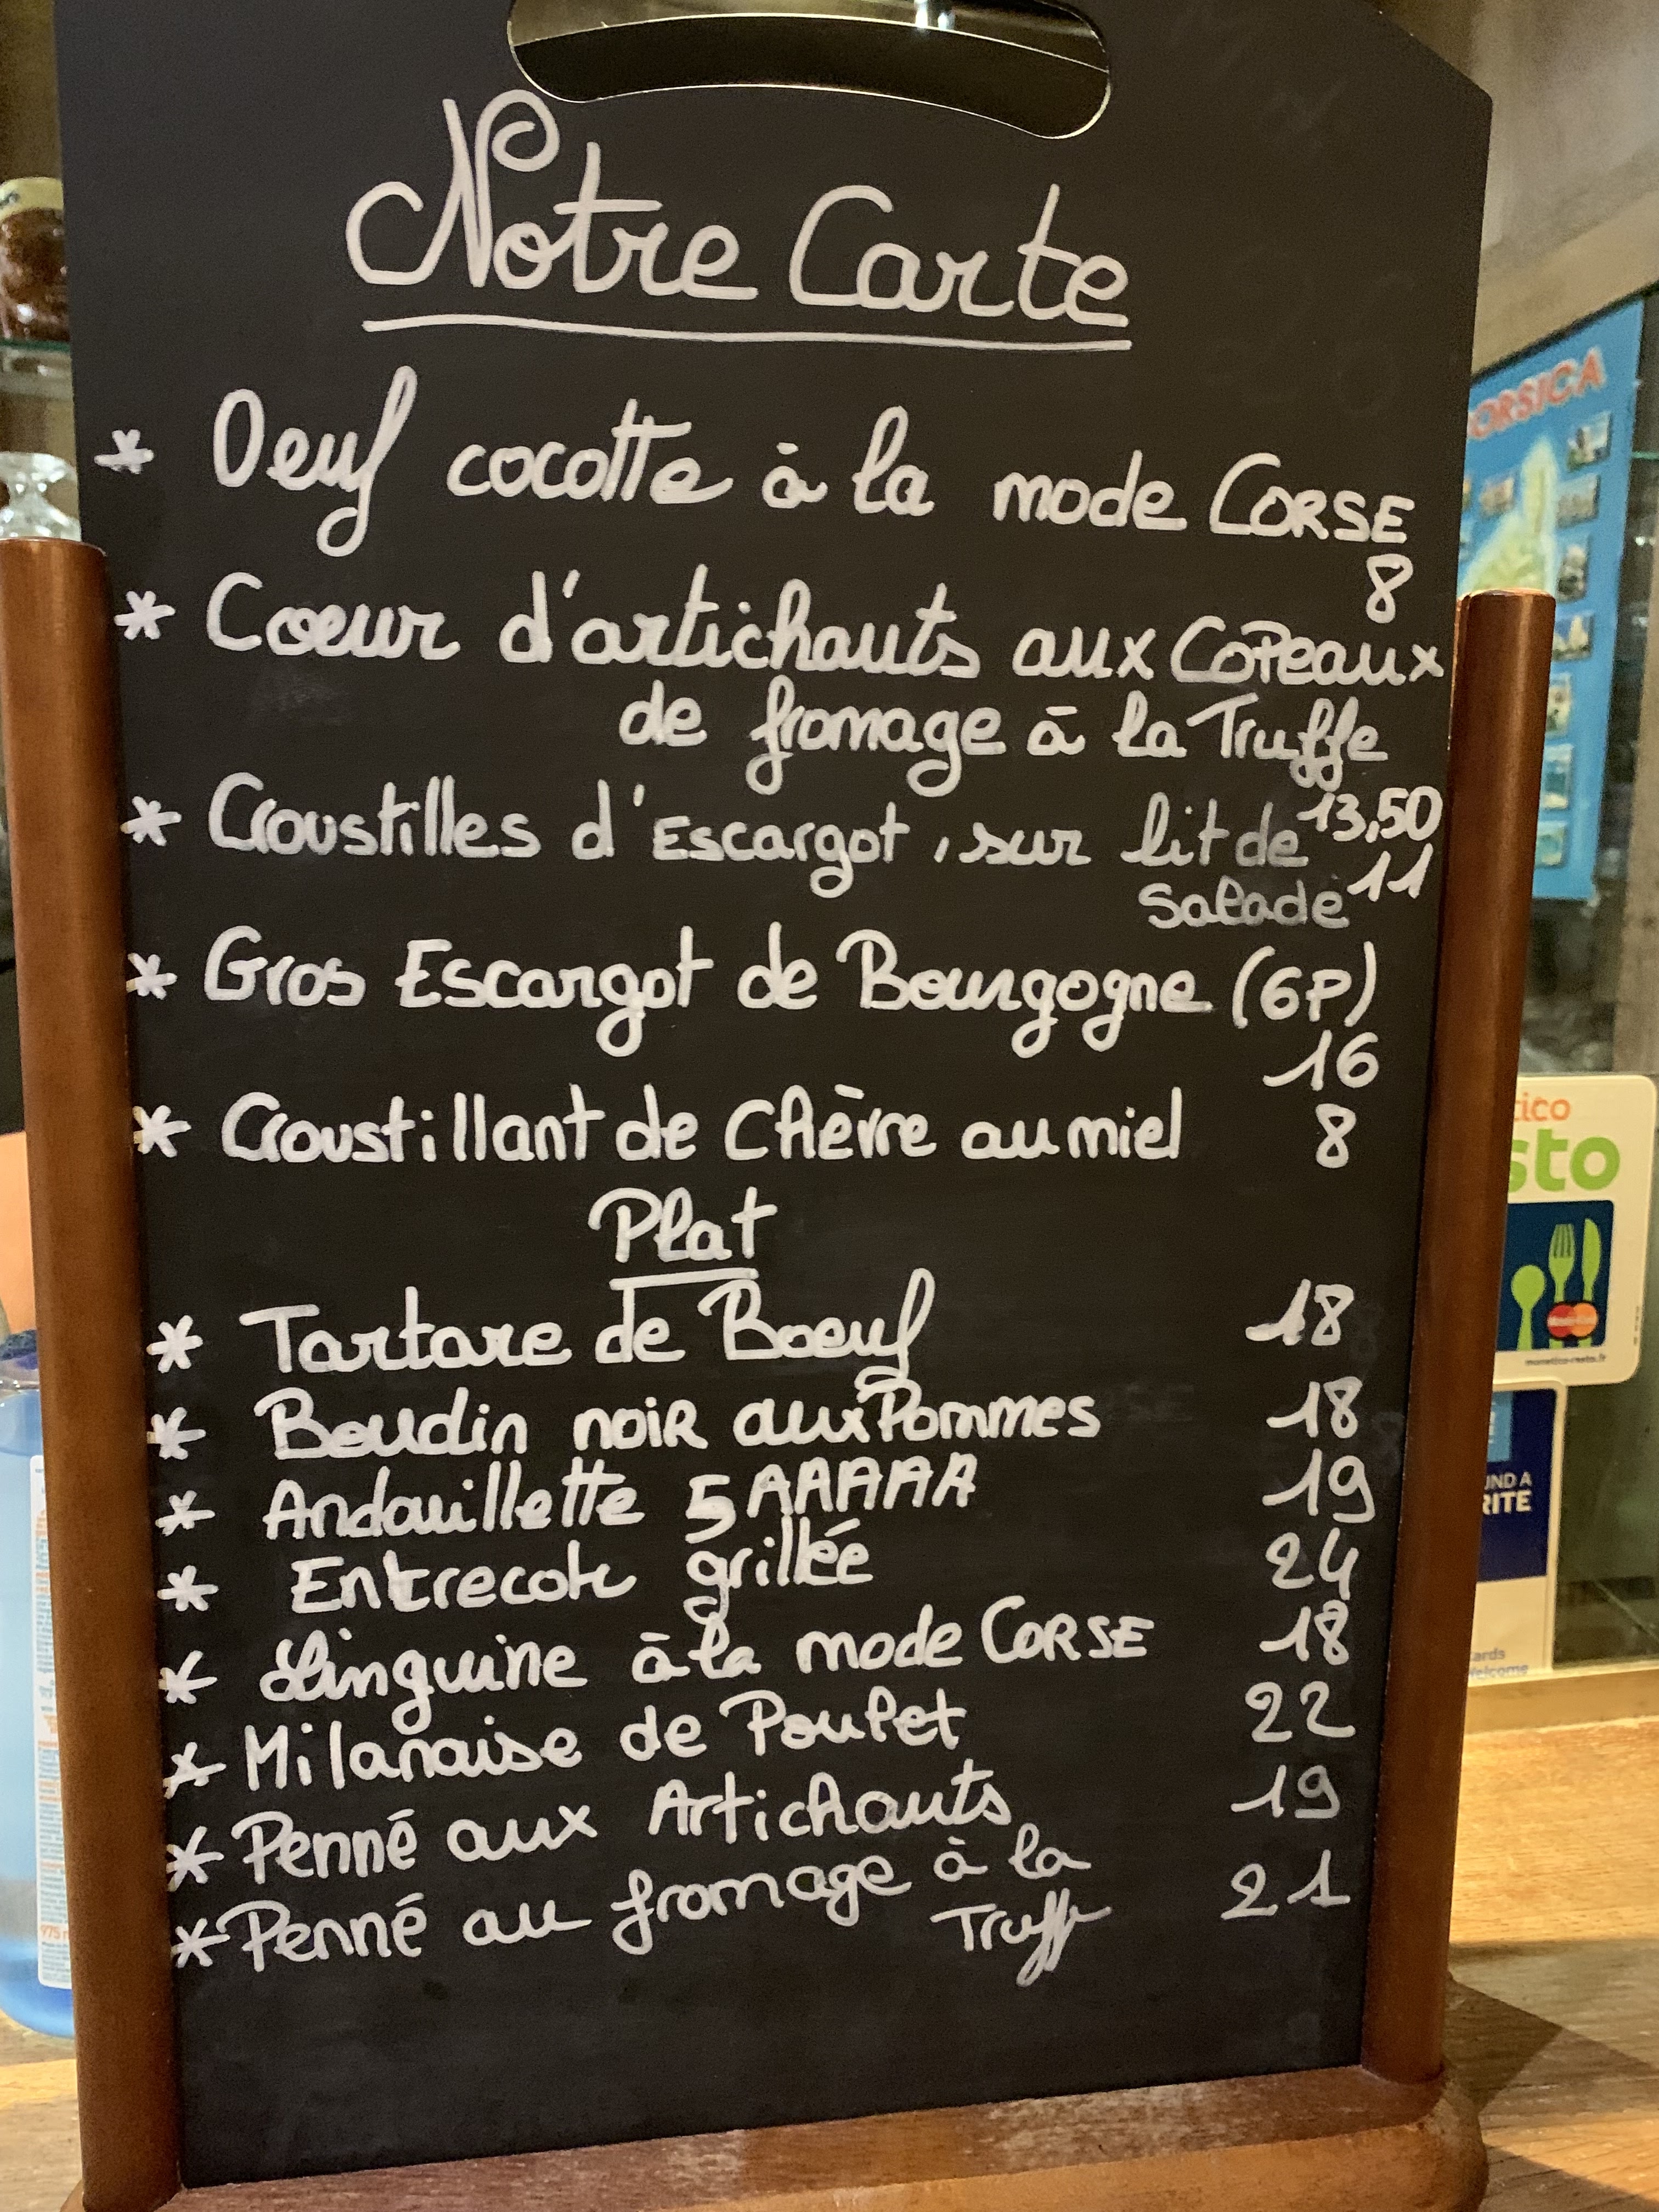 Notre Carte
* Oeuf cocotte à la mode CORSE
8
* Coeur d'artichauts aux Copeaux
de fromage à la Truffe
13,50
* Croustilles d'Escargot, sur lit de
salade 11
* Gros Escargot de Bourgogne (6P)
16
* Croustillant de Chèvre au miel 8
Plat
* Tartare de Boeuf 18
* Boudin noir aux Pommes 18
* Andouillette 5AAAAA 19
* Entrecote grillée 24
* Linguine à la mode CORSE 18
* Milanaise de Poulet 22
* Penné aux Artichauts 19
* Penné au fromage à la
Truffe 21
ORSICA
tico
sto
monetico-resto.fr
UND A
RITE
ards
Welcome
975 m